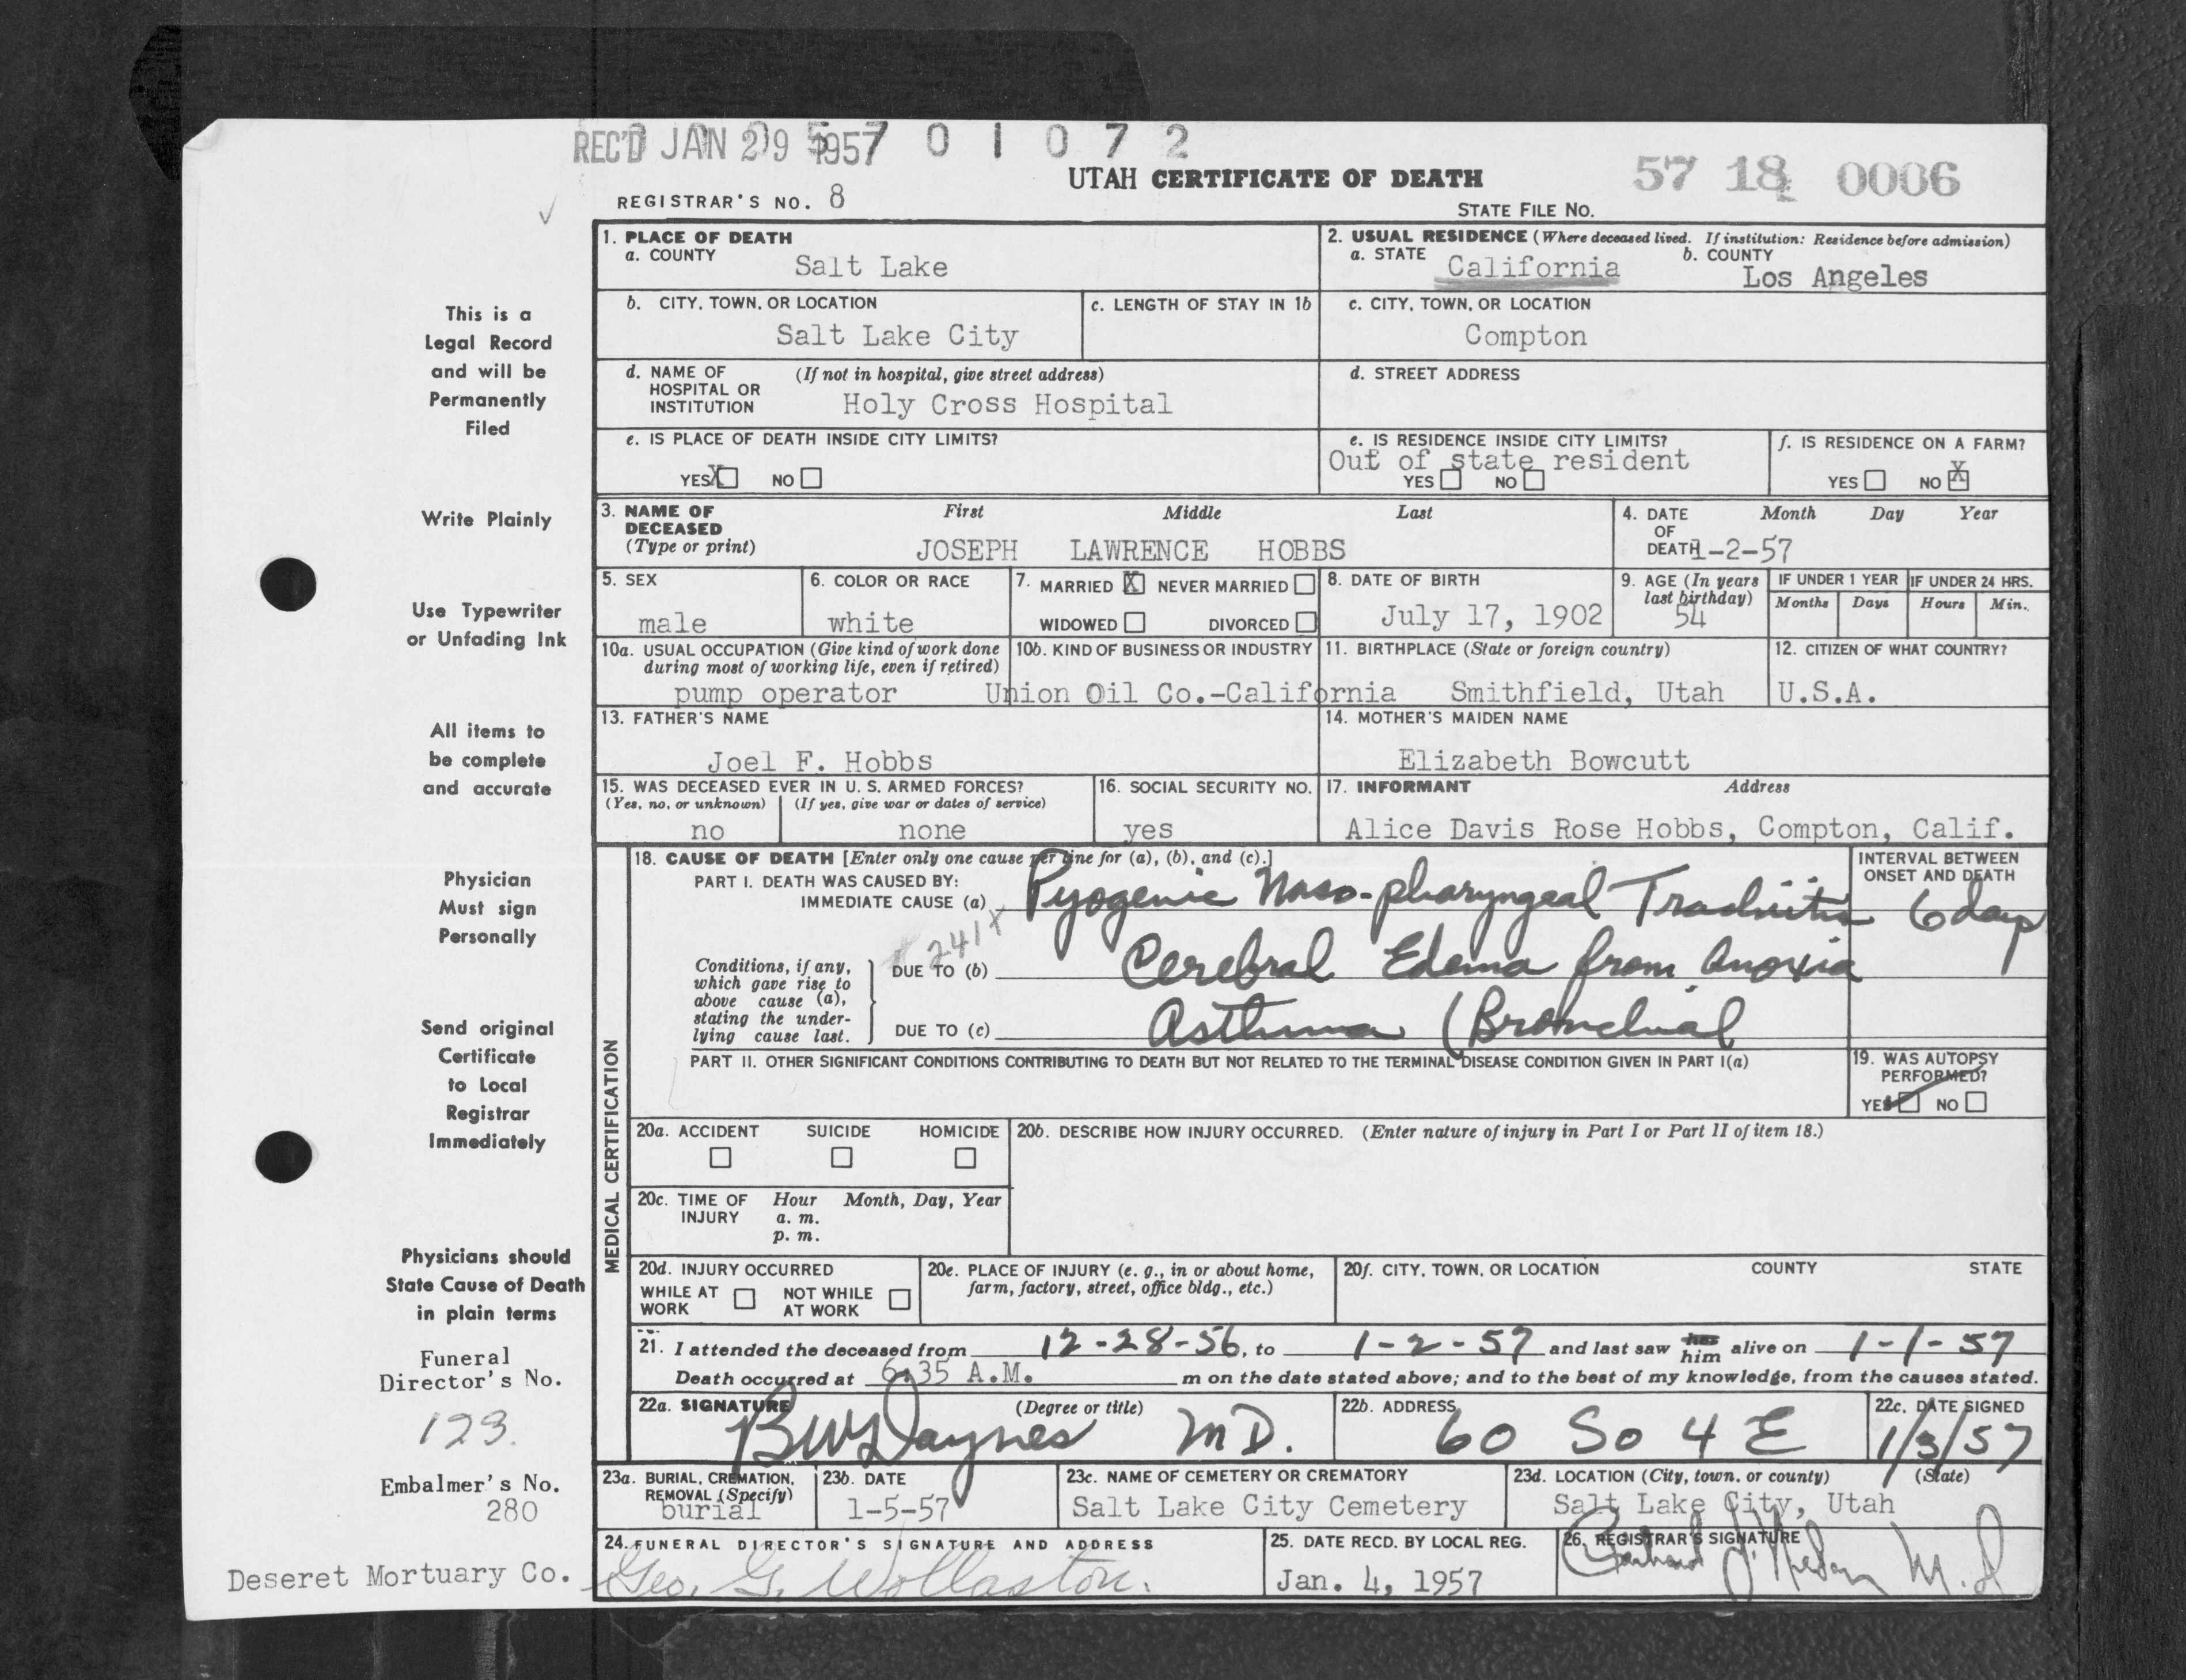 REC'D JAN 29 1957 0 1 0 7 2
UTAH CERTIFICATE OF DEATH
57 18 0006
REGISTRAR'S NO. 8
STATE FILE NO.
1. PLACE OF DEATH
a. COUNTY
Salt Lake
2. USUAL RESIDENCE (Where deceased lived. If institution: Residence before admission)
a. STATE California b. COUNTY Los Angeles
b. CITY, TOWN, OR LOCATION
Salt Lake City
c. LENGTH OF STAY IN 1b
c. CITY, TOWN, OR LOCATION
Compton
d. NAME OF HOSPITAL OR INSTITUTION (If not in hospital, give street address)
Holy Cross Hospital
d. STREET ADDRESS
e. IS PLACE OF DEATH INSIDE CITY LIMITS?
YES X NO
e. IS RESIDENCE INSIDE CITY LIMITS?
Out of state resident
YES NO
f. IS RESIDENCE ON A FARM?
YES NO X
3. NAME OF DECEASED (Type or print)
First Middle Last
JOSEPH LAWRENCE HOBBS
4. DATE OF DEATH Month Day Year
1-2-57
5. SEX
male
6. COLOR OR RACE
white
7. MARRIED X NEVER MARRIED
WIDOWED DIVORCED
8. DATE OF BIRTH
July 17, 1902
9. AGE (In years last birthday)
54
IF UNDER 1 YEAR
Months Days
IF UNDER 24 HRS.
Hours Min.
10a. USUAL OCCUPATION (Give kind of work done during most of working life, even if retired)
pump operator
10b. KIND OF BUSINESS OR INDUSTRY
Union Oil Co.-California
11. BIRTHPLACE (State or foreign country)
Smithfield, Utah
12. CITIZEN OF WHAT COUNTRY?
U.S.A.
13. FATHER'S NAME
Joel F. Hobbs
14. MOTHER'S MAIDEN NAME
Elizabeth Bowcutt
15. WAS DECEASED EVER IN U. S. ARMED FORCES?
(Yes, no, or unknown) (If yes, give war or dates of service)
no none
16. SOCIAL SECURITY NO.
yes
17. INFORMANT Address
Alice Davis Rose Hobbs, Compton, Calif.
MEDICAL CERTIFICATION
18. CAUSE OF DEATH [Enter only one cause per line for (a), (b), and (c).]
INTERVAL BETWEEN ONSET AND DEATH
PART I. DEATH WAS CAUSED BY:
IMMEDIATE CAUSE (a) Pyogenic Naso-pharyngeal 6 days
241X
Conditions, if any, which gave rise to above cause (a), stating the underlying cause last.
DUE TO (b) Cerebral Edema from Anoxia
DUE TO (c) Asthma (Bronchial
PART II. OTHER SIGNIFICANT CONDITIONS CONTRIBUTING TO DEATH BUT NOT RELATED TO THE TERMINAL DISEASE CONDITION GIVEN IN PART I(a)
19. WAS AUTOPSY PERFORMED?
YES NO
20a. ACCIDENT SUICIDE HOMICIDE
20b. DESCRIBE HOW INJURY OCCURRED. (Enter nature of injury in Part I or Part II of item 18.)
20c. TIME OF INJURY Hour Month, Day, Year
a. m.
p. m.
20d. INJURY OCCURRED
WHILE AT WORK NOT WHILE AT WORK
20e. PLACE OF INJURY (e. g., in or about home, farm, factory, street, office bldg., etc.)
20f. CITY, TOWN, OR LOCATION COUNTY STATE
21. I attended the deceased from 12-28-56, to 1-2-57 and last saw her him alive on 1-1-57
Death occurred at 6:35 A.M. m on the date stated above; and to the best of my knowledge, from the causes stated.
22a. SIGNATURE (Degree or title)
BW Daynes MD.
22b. ADDRESS
60 So 4 E
22c. DATE SIGNED
1/3/57
23a. BURIAL, CREMATION, REMOVAL (Specify)
burial
23b. DATE
1-5-57
23c. NAME OF CEMETERY OR CREMATORY
Salt Lake City Cemetery
23d. LOCATION (City, town, or county) (State)
Salt Lake City, Utah
24. FUNERAL DIRECTOR'S SIGNATURE AND ADDRESS
Geo. G. Wollaston.
25. DATE RECD. BY LOCAL REG.
Jan. 4, 1957
26. REGISTRAR'S SIGNATURE
M.D
This is a
Legal Record
and will be
Permanently
Filed
Write Plainly
Use Typewriter
or Unfading Ink
All items to
be complete
and accurate
Physician
Must sign
Personally
Send original
Certificate
to Local
Registrar
Immediately
Physicians should
State Cause of Death
in plain terms
Funeral
Director's No.
123.
Embalmer's No.
280
Deseret Mortuary Co.